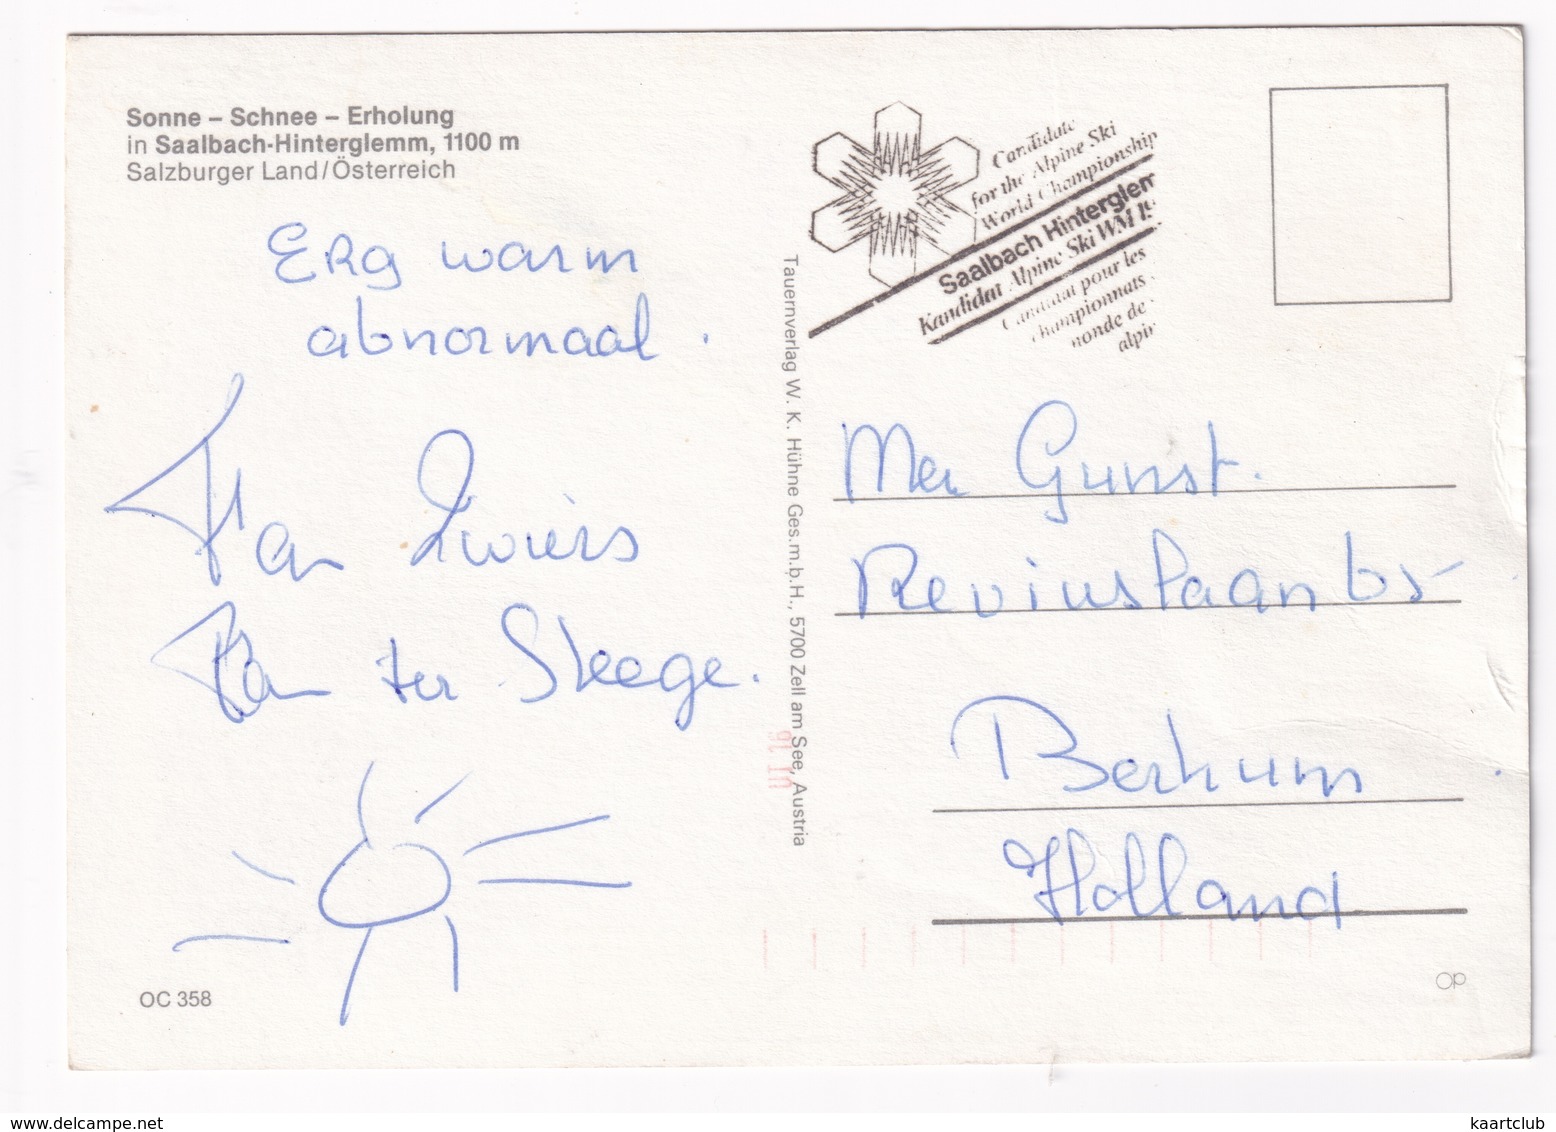 Sonne – Schnee – Erholung
in Saalbach-Hinterglemm, 1100 m
Salzburger Land/Österreich
Erg warm
abnormaal.
Han Zwiers
Han ter Steege.
OC 358
Tauernverlag W. K. Hühne Ges.m.b.H., 5700 Zell am See, Austria
Candidate
for the Alpine Ski
World Championship
Saalbach Hinterglem
Kandidat Alpine Ski WM 19
Candidat pour les
championnats
monde de
alpin
Gunst.
Reviuslaan 65
Berkum
Holland
OP
www.delcampe.net
kaartclub